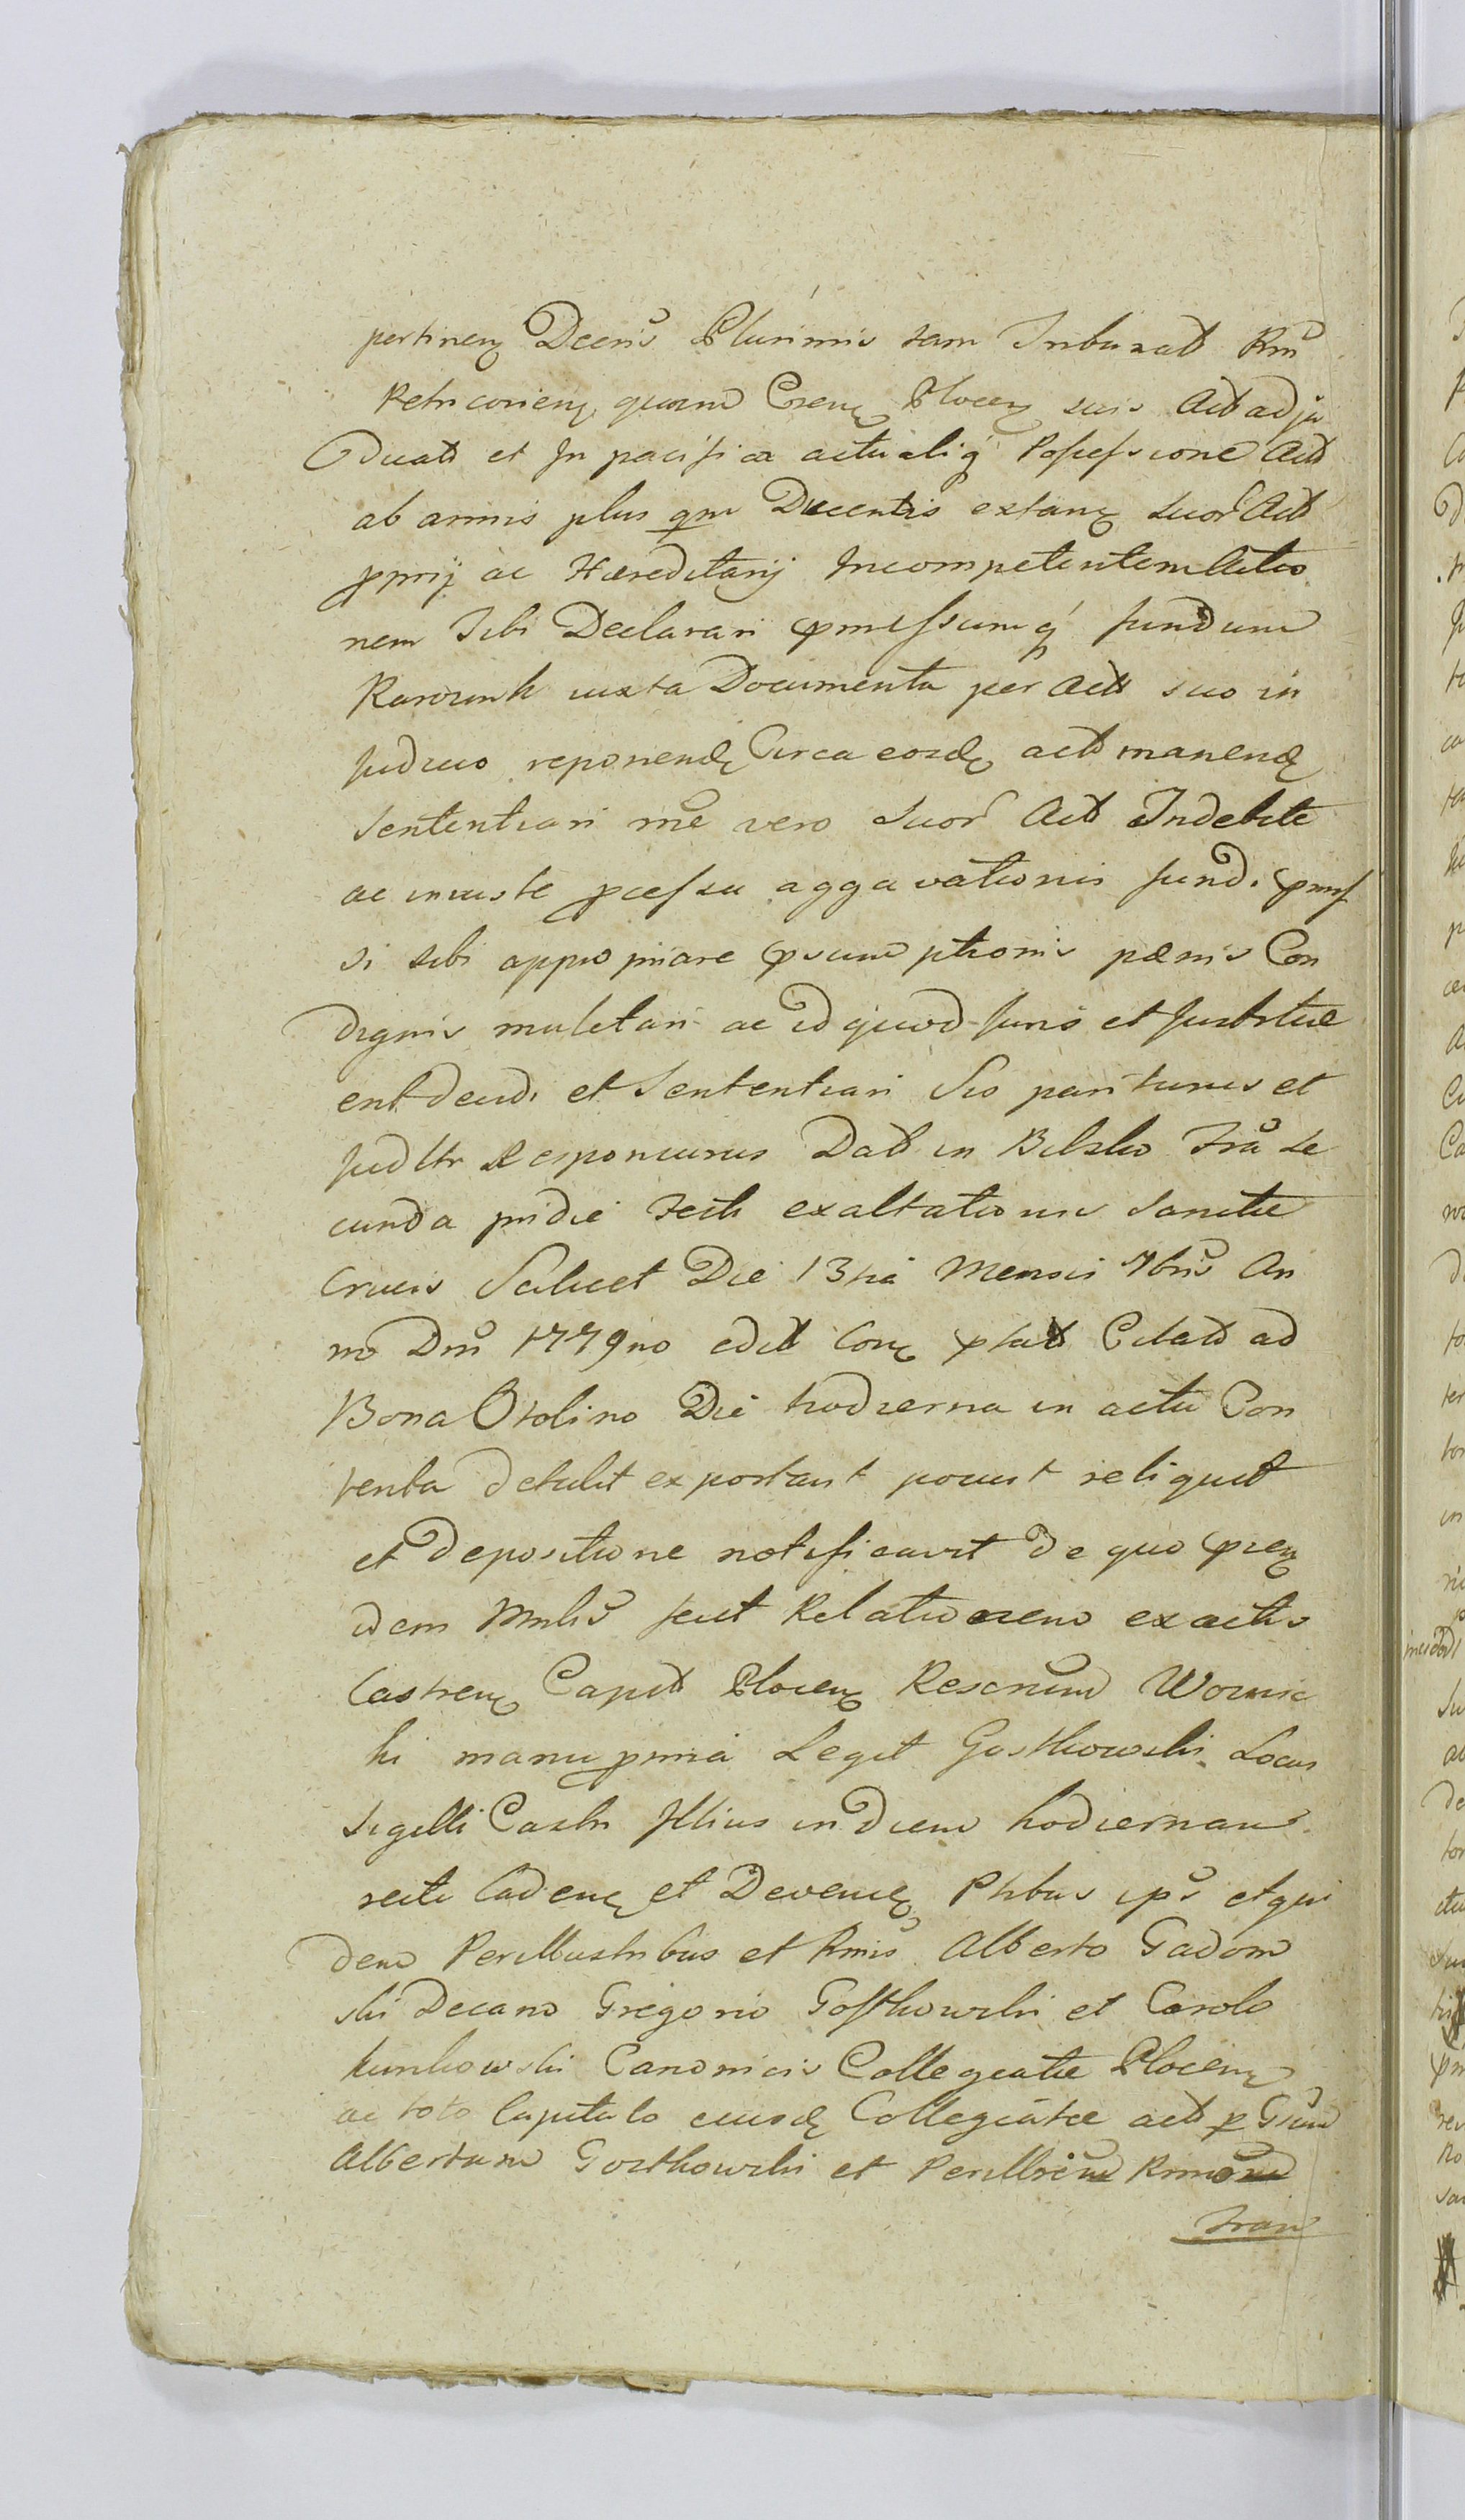 pertinen Decris Plurimis tam Tribunalt Rni
Petricovien, quam Coren Plocen suis Act adju
dicats et In pacifica actualiq Possessione Act
ab annis plus qm Ducentis extan Suor Act
pprij ac Hæreditarij Incompetentem Actio
nem Sibi Declarari pmissumq fundum
Karwink iuxta Documenta per Act suo in
Judicio reponend Circa eosd act manend
Sententiari me vero Suor Act Indebite
ac iniuste pcessu aggavationis fund. pmis
si sibi appropriare psumptionis pænis Con
dignis mulctari ac id quod Juris et Justitiæ
erit decid. et Sententiari Sis pariturus et
Judltr Responsurus Dat in Bilsko Fria se
cunda pridie Festi exaltationis Sanctæ
Crucis Scilicet Die 13tia Mensis 7bris An
no Dni 1779no edit Con pfat Citats ad
Bona Osolino Die hodierna in actu Con
tenta detulit exportavit posuit reliquit
et depositione notificavit de quo pren
idem Mnlis fecit Relationem ex actis
Castren Capit Plocen Rescriptum Woznic
ki manu ppria Legit Gostkowski Locus
Sigilli Castr Illius in diem hodiernam
recte Caden et Deveni Ptibus ips et qui
dem Perillustribus et Rmis Alberto Gadom
ski Decano Gregorio Gosthowski et Carolo
Kunkowski Canonicis Collegiatæ Plocen
ac toto Capitulo eiusd Collegiatæ act p Gsum
Albertum Gosthowski et Perillrem Rmum
Fran